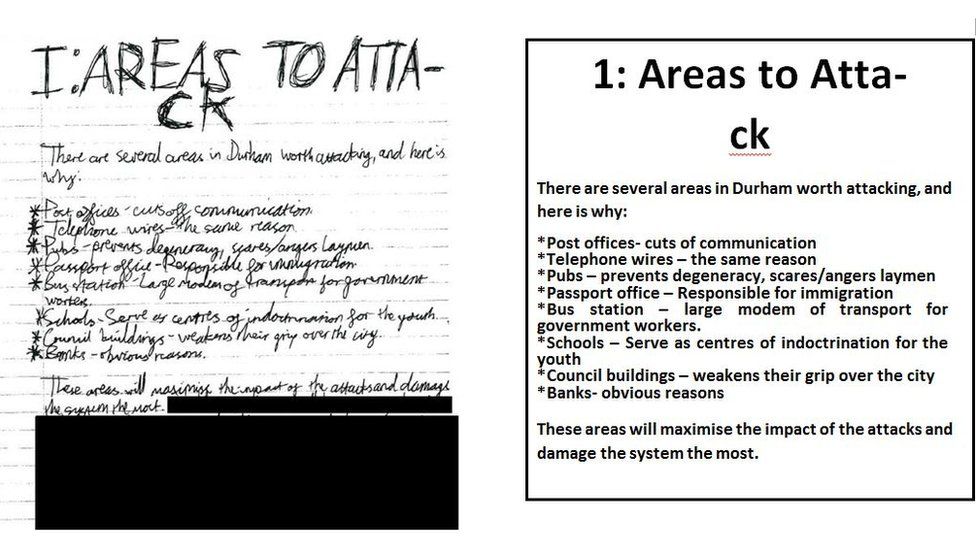 I: AREAS TO ATTA-
CK
There are several areas in Durham worth attacking, and here is
why:
*Post offices - cuts off communication.
*Telephone wires - the same reason
*Pubs - prevents degeneracy, scares/angers laymen.
*Passport office - Responsible for immigration
*Bus station - Large modem of transport for government
workers.
*Schools - Serve as centres of indoctrination for the youth.
*Council buildings - weakens their grip over the city.
*Banks - obvious reasons.
These areas will maximise the impact of the attacks and damage
the system the most.
1: Areas to Atta-
ck
There are several areas in Durham worth attacking, and
here is why:
*Post offices- cuts of communication
*Telephone wires – the same reason
*Pubs – prevents degeneracy, scares/angers laymen
*Passport office – Responsible for immigration
*Bus station – large modem of transport for
government workers.
*Schools – Serve as centres of indoctrination for the
youth
*Council buildings – weakens their grip over the city
*Banks- obvious reasons
These areas will maximise the impact of the attacks and
damage the system the most.